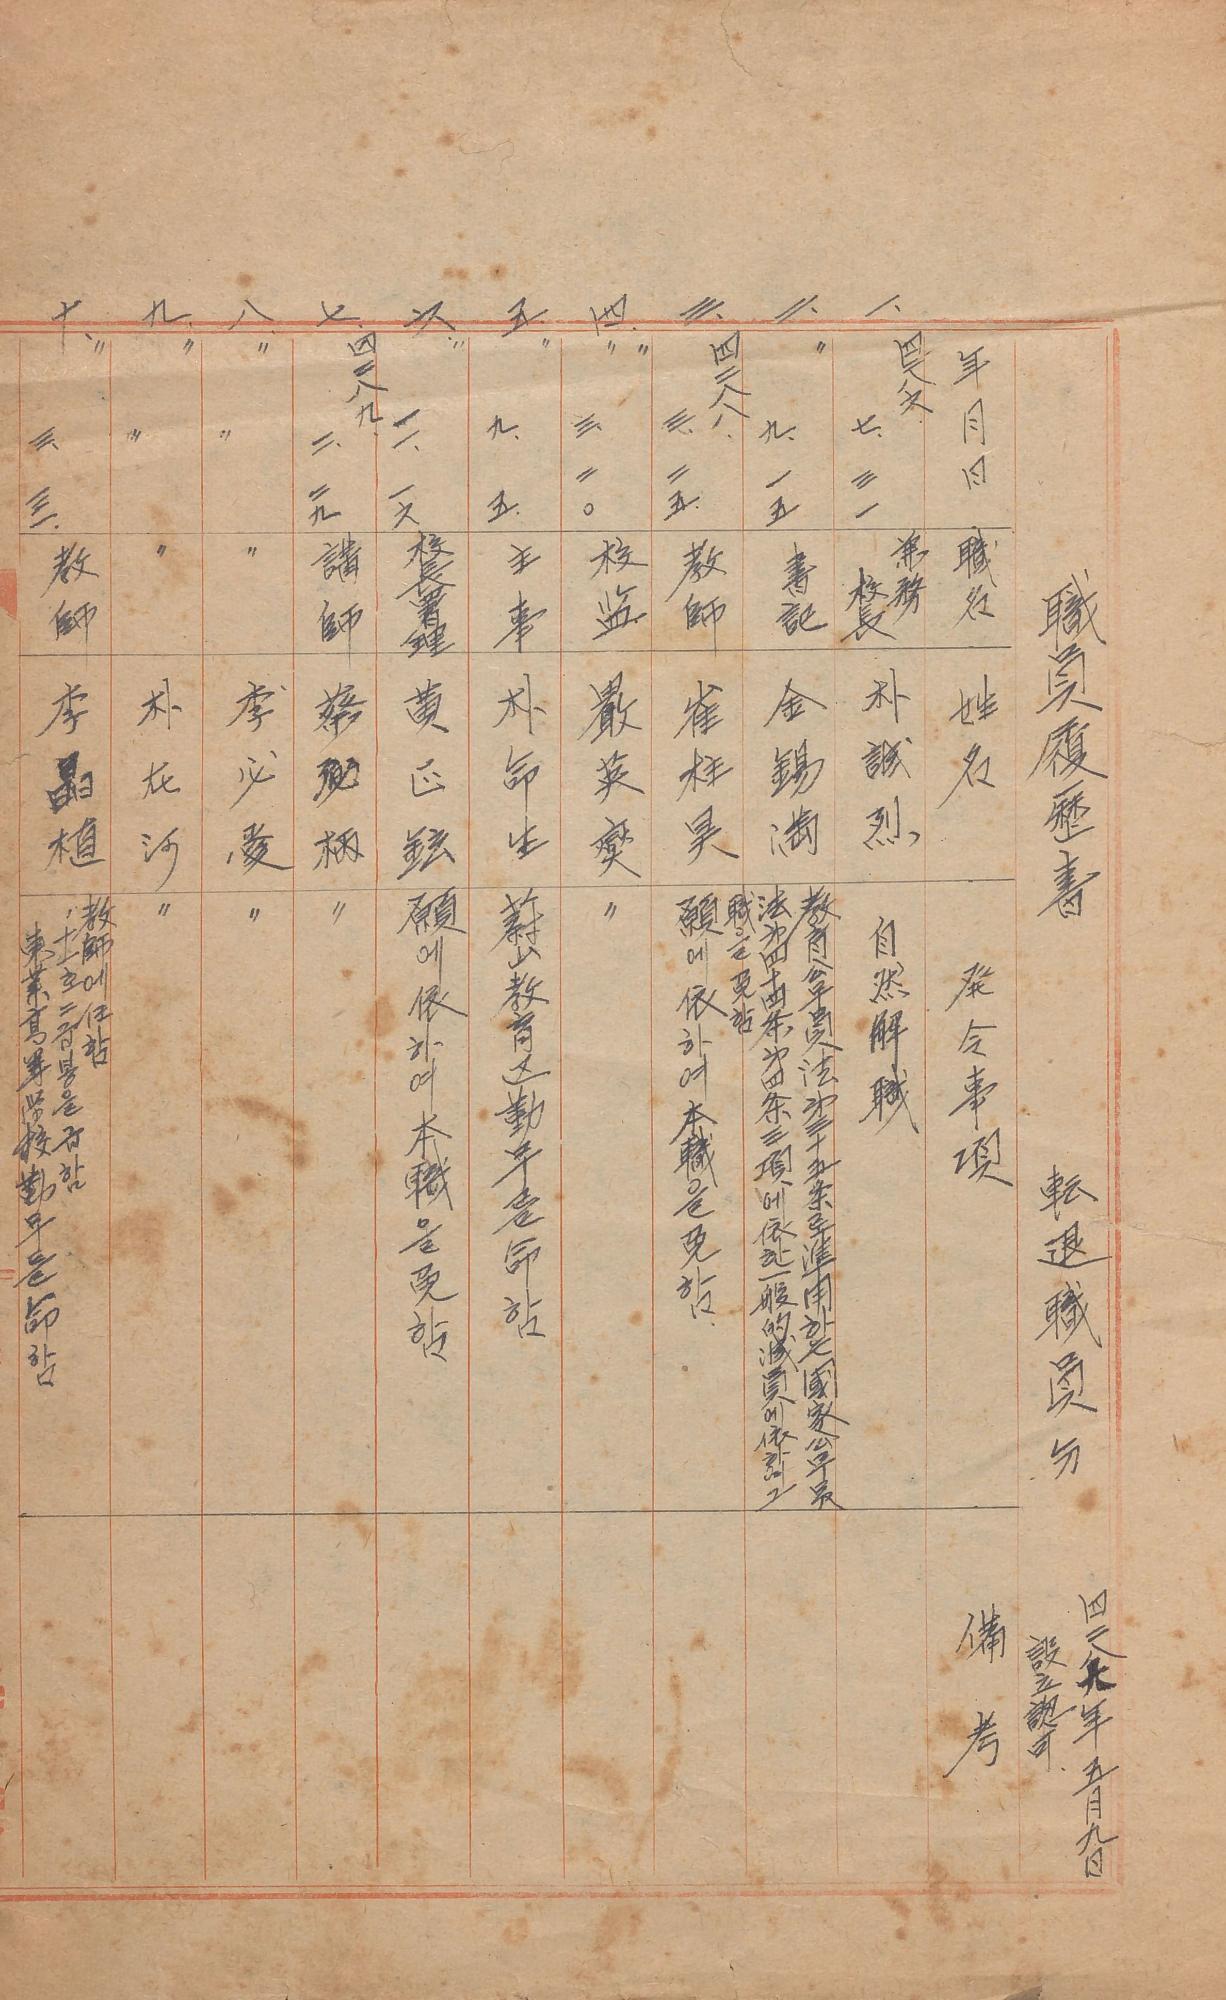 職員履歴書 転退職員分
四二八六年五月九日
設立認可
年月日 職名 姓名 発令事項 備考
一、四二八六 七、三一 兼務校長 朴誠烈 自然解職
二、〃 九、一五 書記 金錫満 教育公務員法第三十五条로準用하는國家公務員
法第四十四条第四条三項에依한一般的減員에依하여그
職을免함
三、四二八八、三、二五 教師 崔柱昊 願에依하여本職을免함
四、〃 〃 三、二〇 校監 嚴英燮 〃
五、〃 九、五 主事 朴命生 蔚山教育区勤무를命함
六、〃 一一、一六 校長署理 黄正鉉 願에依하여本職을免함
七、四二八九、二、二九 講師 蔡 柄 〃
八、〃 〃 〃 李必愛 〃
九、〃 〃 〃 朴在河 〃
十、〃 三、三一 教師 李晶植 教師에任함
十一호 봉을 함
高等学校勤무를命함